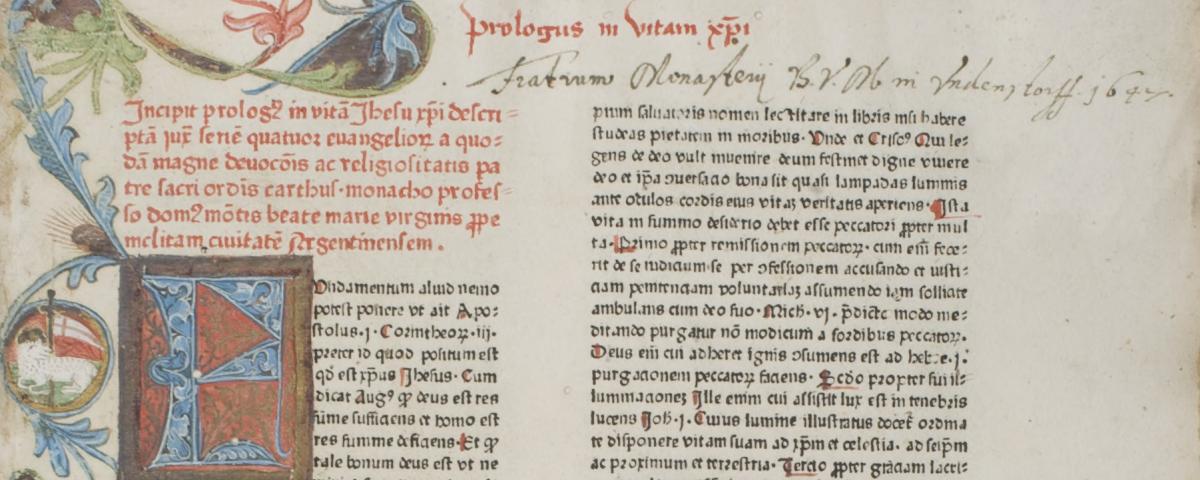 Prologus in vitam xp̄i
Fratrum Monasterij B. V. M in Yndenstorff. 1647.
Incipit prologꝰ in vitā Jhesu xp̄i descri⸗
ptā iux̄ seriē quatuor euangelioꝝ a quo⸗
dā magne deuocōis ac religiositatis pa
tre sacri ordīs carthus· monacho profes⸗
so domꝰ mōtis beate marie virginis ꝓpe
inclitam ciuitatē Argentinensem.
Undamentum aliud nemo
potest ponere vt ait Apo⸗
stolus.j. Corintheoꝝ.iii.
preter id quod positum est
qd̄ est xp̄us Jhesus. Cum
dicat Augꝰ ꝙ deus est res
sūme sufficiens et homo est
res summe deficiens. Et ꝙ
tale bonum deus est vt ne
pium saluatoris nomen lectitare in libris nisi habere
studeas pietatem in moribus. Vnde et Crisoꝰ Qui le⸗
gens de deo vult inuenire deum festinet digne viuere
deo et ip̄a ɔuersacio bona sit quasi lampadas luminis
ante oculos cordis eius vitaꝫ veritatis aperiens. Ista
vita in summo desiderio debet esse peccatori ꝓpter mul
ta. Primo ꝓpter remissionem peccatoꝝ. cum em̄ fece⸗
rit de se iudicium se per ɔfessionem accusando et iusti⸗
ciam penitenciam voluntariaꝫ assumendo iam sollicite
ambulans cum deo suo. Mich. vi. p̄dicto modo me⸗
ditando purgatur nō modicum a sordibus peccatoꝝ.
Deus em̄ cui adheret ignis ɔsumens est ad hebre.j.
purgacionem peccatoꝝ faciens. Scdo propter sui il⸗
luminacioneꝫ Ille enim cui assistit lux est in tenebris
lucens Joh.j. Cuius lumine illustratus docet̄ ordina
te disponere vitam suam ad xp̄m et celestia. ad seip̄m
ac proximum et terrestria. Tercio ꝓpter graciam lacri⸗